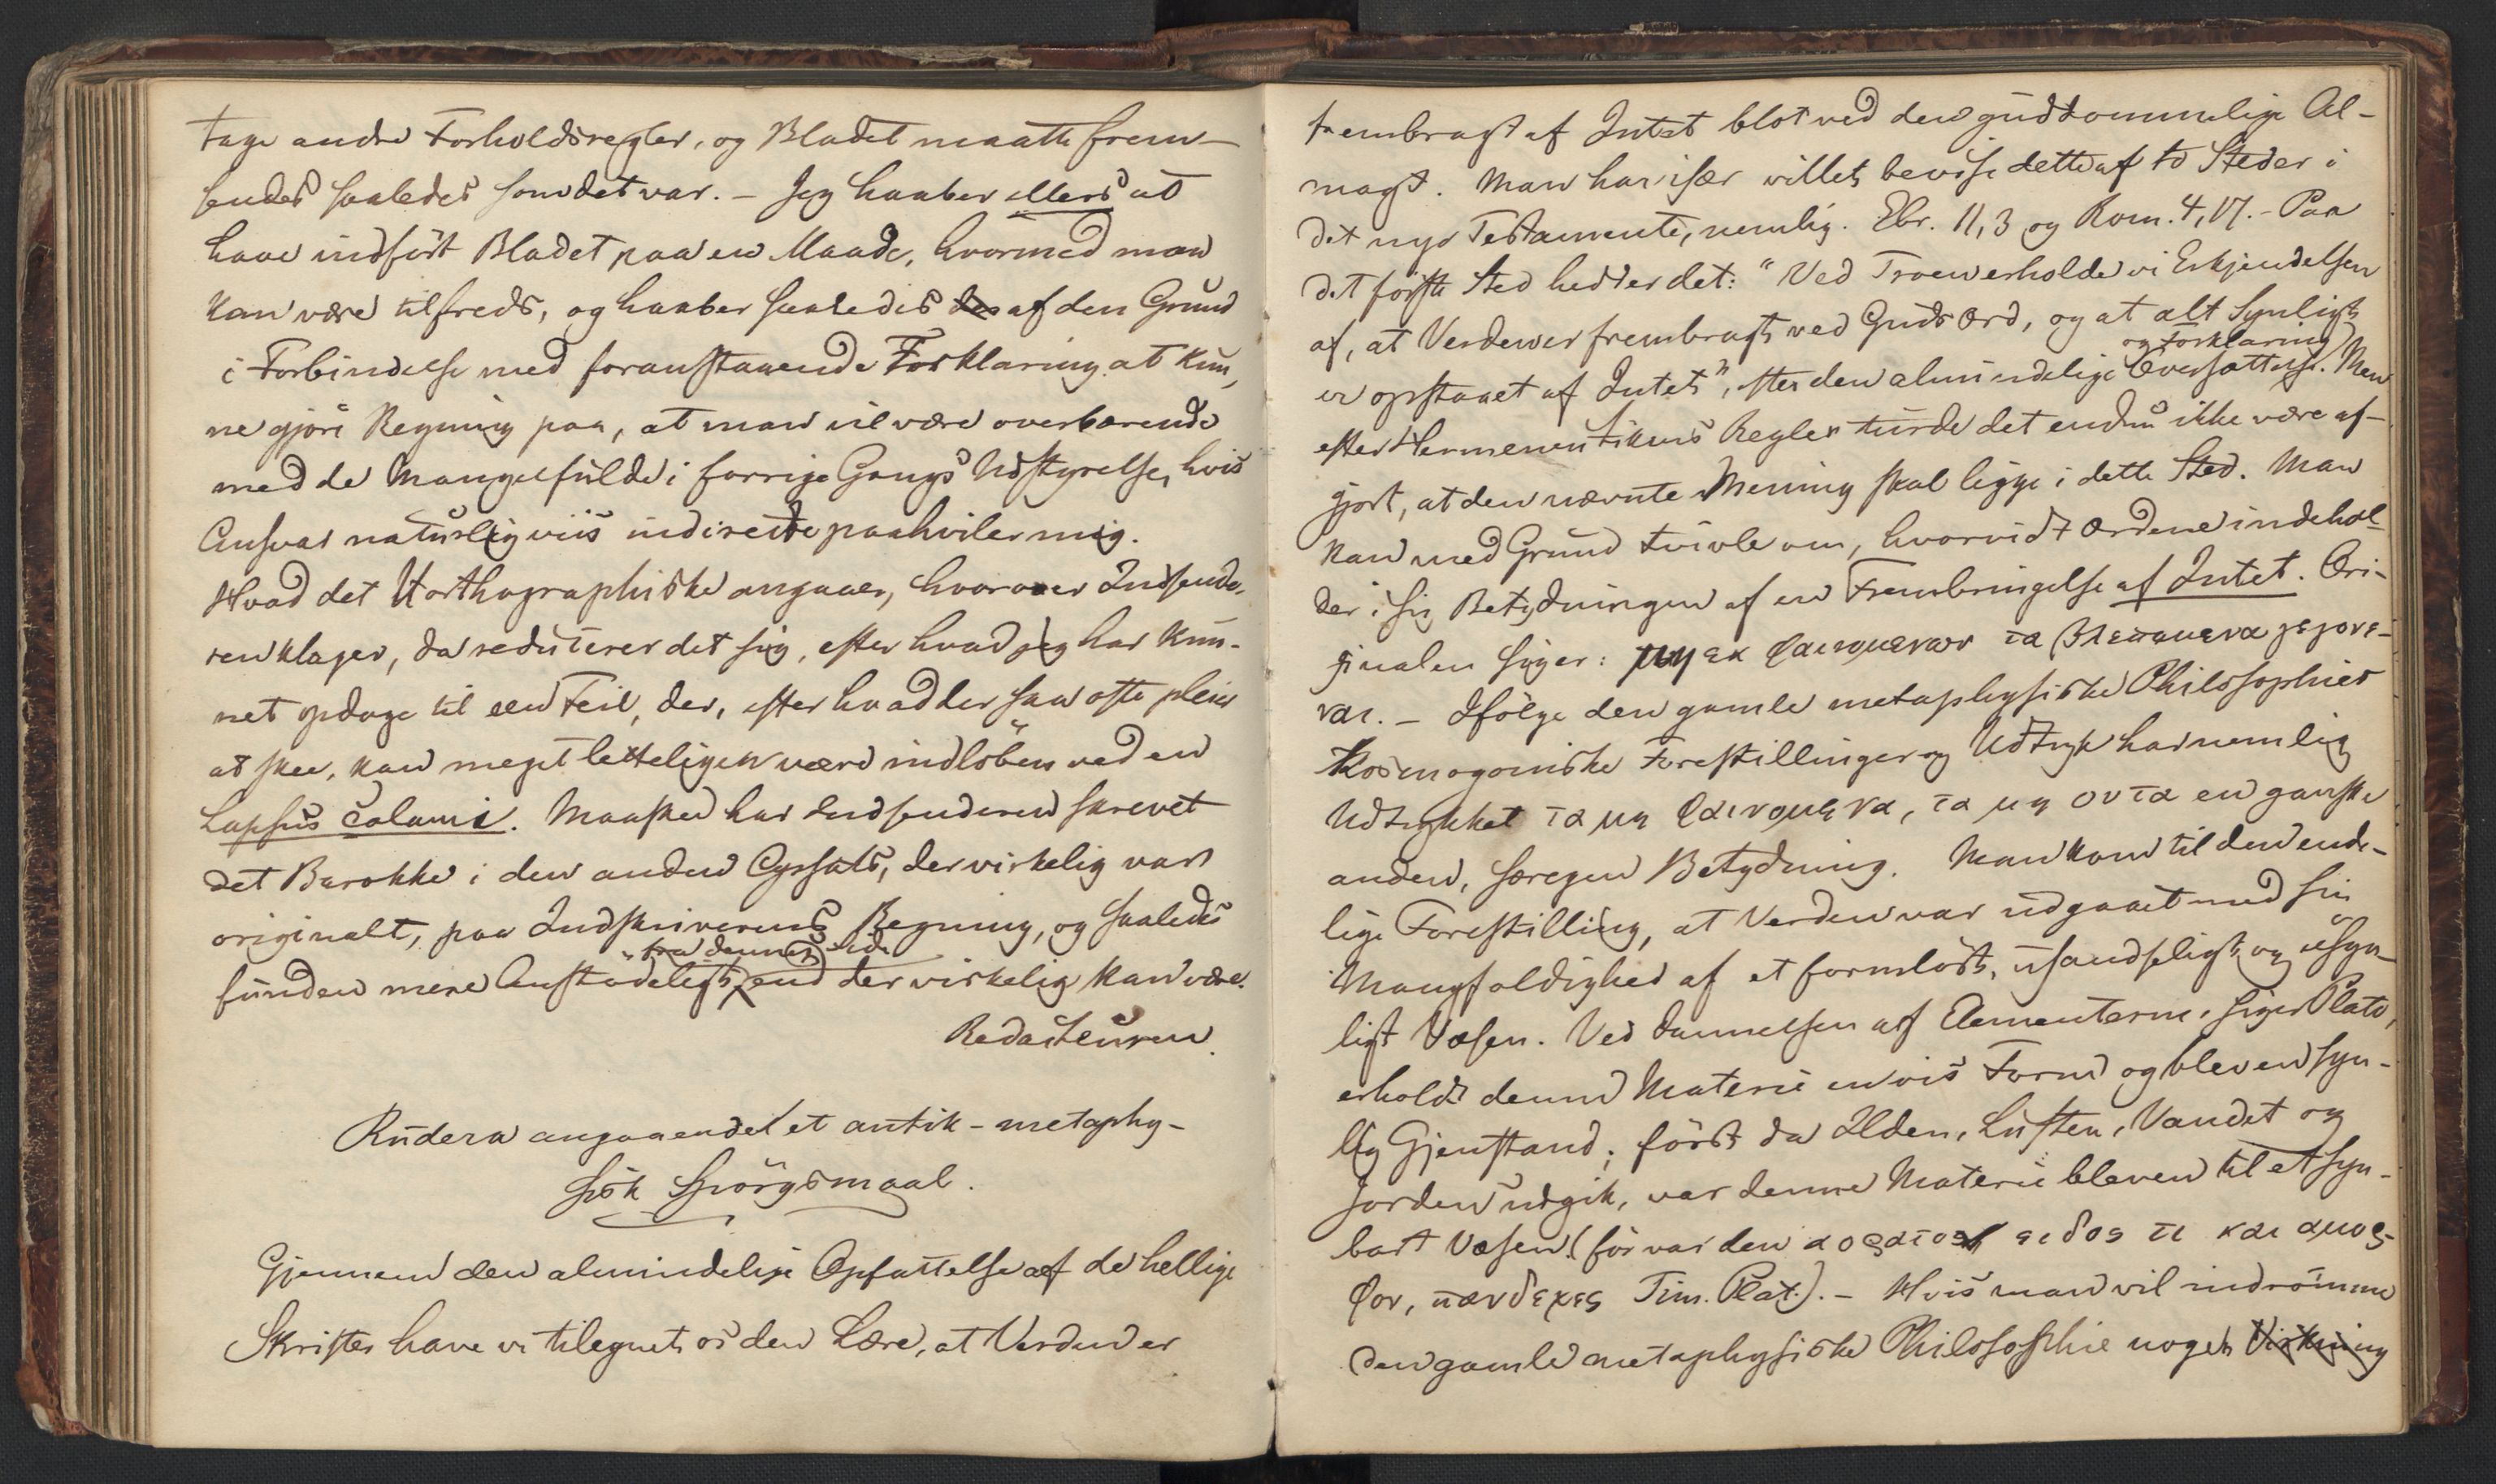 tage andre Forholdsregler, og Bladet maatte frem-
sendes saaledes som det var. – Jeg haaber ellers at
have indført Bladet paa en Maade, hvormed man
kan være tilfreds, og haaber saaledes des af den Grund
i Forbindelse med foranstaaende Forklaring at kun-
ne gjöre Regning paa, at man vil være overbærende
med de Mangelfulde i forrige Gangs Udstyrelse, hvis
Ansvar naturligviis indirecte paahviler mig.
Hvad det Uorthographiske angaaer, hvorover Indsende-
ren klager, da reducerer det sig, efter hvad jeg har kun-
net opdage til een Feil, der, efter hvad der saa ofte pleier
at skee, kan meget letteligen være indlöben ved en
Lapsus calami. Maaskee har Indsenderen skrevet
det Barokke i den anden Opsats, der virkelig var
originalt, paa Indskriverens Regning, og saaledes
fra dennes Side
funden mere Anstödeligt, end der virkelig kan være.
Redacteuren.
Rudera angaaende et antik-metaphy-
sisk Spörgsmaal.
Gjennem den almindelige Opfattelse af de hellige
Skrifter have vi tilegnet os den Lære, at Verden er
frembragt af Intet blot ved den guddommelige Al-
magt. Man har især villet bevise dette af to Steder i
det nye Testamente, nemlig. Ebr. 11,3 og Rom. 4,17. – Paa
det förste Sted hedder det: "Ved Troen erholde vi Erkjendelsen
af, at Verden er frembragt ved Guds Ord, og at alt Synligt
og Forklaring
er opstaaet af Intet", efter den almindelige Oversættelse. Men
efter Hermeneutikens Regler turde det endnu ikke være af-
gjort, at den nævnte Mening skal ligge i dette Sted. Man
kan med Grund tvivle om, hvorvidt Ordene indehol-
der i sig Betydningen af en Frembringelse af Intet. Ori-
ginalen siger: μη εκ φαινομενων τα βλεπομενα γεγονε-
ναι. – Ifölge den gamle metaphysiske Philosophies
Kosmogoniske Forestillinger og Udtryk har nemlig
Udtrykket τα μη φαινομενα, τα μη οντα en ganske
anden, særegen Betydning. Man kom til den ende-
lige Forestilling, at Verden var udgaaet med sin
Mangfoldighed af et formlöst, usandseligt og usyn-
ligt Væsen. Ved Dannelsen af Elementerne, siger Plato,
erholdt denne Materie en vis Form og blev en syn-
lig Gjenstand; först da Ilden, Luften, Vandet og
Jorden udgik, var denne Materie bleven til et syn-
bart Væsen (för var den αορατον ειδος τι και αμορ-
φον, πανδεχες Tim. Plat.). – Hvis man vil indrömme
den gamle metaphysiske Philosophie noget Virkning